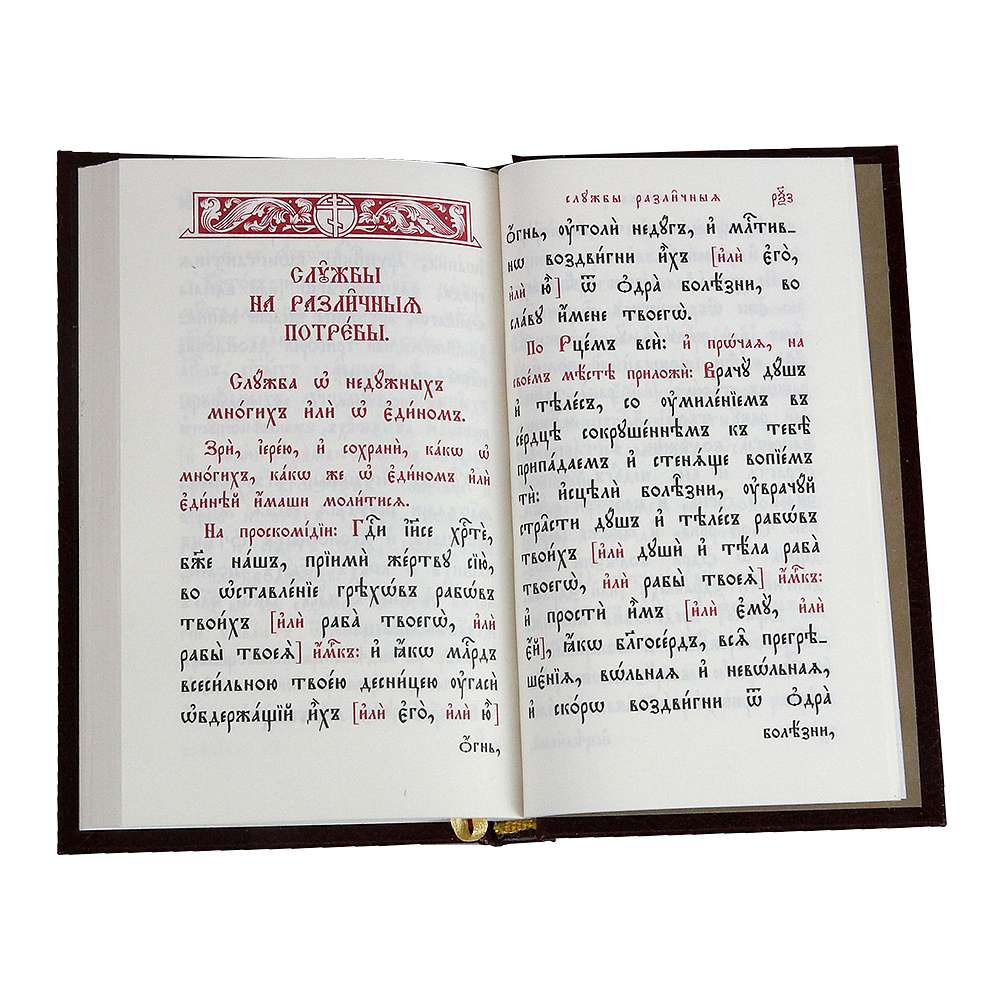 СЛꙊ́ЖБЫ
НА РАЗЛИ̑ЧНЫѦ
ПОТРЕ́БЫ.
Слꙋ́жба ѡ҆ недꙋ́жныхъ
мно́гихъ и҆лѝ ѡ҆ є҆ди́номъ.
Зрѝ, і҆ере́ю, и҆ сохранѝ, ка́кѡ ѡ҆
мно́гихъ, ка́кѡ же ѡ҆ є҆ди́номъ и҆лѝ
є҆ди́нѣй и҆́маши моли́тисѧ.
На проскомі́дїи: Гдⷭ҇и і҆и҃се хрⷭ҇тѐ,
бж҃е на́шъ, прїимѝ же́ртвꙋ сїю̀,
во ѡ҆ставле́нїе грѣхѡ́въ рабѡ́въ
твои́хъ [и҆лѝ раба̀ твоегѡ̀, и҆лѝ
рабы̀ твоеѧ̀] и҆́мⷬ҇къ: и҆ ꙗ҆́кѡ млⷭ҇рдъ
всеси́льною твое́ю десни́цею ᲂу҆гасѝ
ѡ҆бдержа́щїй и҆̀хъ [и҆лѝ є҆го̀, и҆лѝ ю҆̀]
ѻ҆́гнь,
слꙋ́жбы разли̑чныѧ
ѻ҆́гнь, ᲂу҆толѝ недꙋ́гъ, и҆ млⷭ҇тив-
нѡ воздви́гни и҆̀хъ [и҆лѝ є҆го̀,
и҆лѝ ю҆̀] ѿ ѻ҆дра̀ болѣ́зни, во
сла́вꙋ и҆́мене твоегѡ̀.
По Рце́мъ всѝ: и҆ прѡ́чаѧ, на
свое́мъ мѣ́стѣ приложѝ: Врачꙋ̀ дꙋ́шъ
и҆ тѣле́съ, со ᲂу҆миле́нїемъ въ
се́рдцѣ сокрꙋше́ннѣмъ къ тебѣ̀
припа́даемъ и҆ стенѧ́ще вопїе́мъ
тѝ: и҆сцѣлѝ болѣ̑зни, ᲂу҆врачꙋ́й
стра̑сти дꙋ́шъ и҆ тѣле́съ рабѡ́въ
твои́хъ [и҆лѝ дꙋшѝ и҆ тѣ́ла раба̀
твоегѡ̀, и҆лѝ рабы̀ твоеѧ̀] и҆́мⷬ҇къ:
и҆ простѝ и҆̀мъ [и҆лѝ є҆мꙋ̀, и҆лѝ
є҆́й], ꙗ҆́кѡ бл҃госе́рдъ, всѧ̑ прегрѣ-
шє́нїѧ, вѡ́льнаѧ и҆ невѡ́льнаѧ,
и҆ ско́рѡ воздви́гни ѿ ѻ҆дра̀
болѣ́зни,